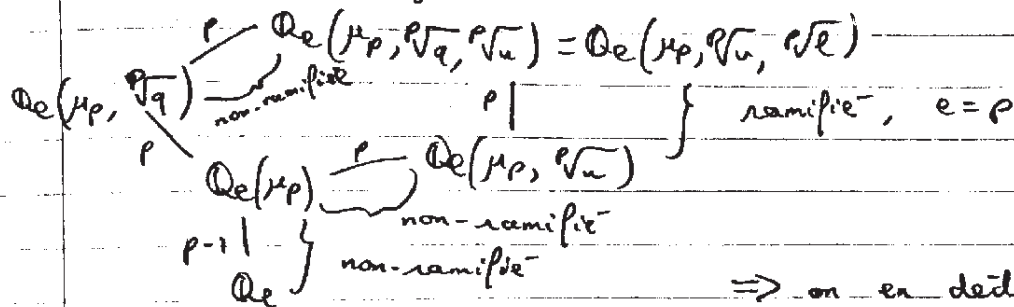 p Qe(μp, ᵖ√q, ᵖ√u) = Qe(μp, ᵖ√u, ᵖ√ℓ)
Qe(μp, ᵖ√q) non-ramifiée p | } ramifié, e = p
p Qe(μp) p Qe(μp, ᵖ√u)
non-ramifié
p-1 | } non-ramifiée
Qe
⇒ on en déd